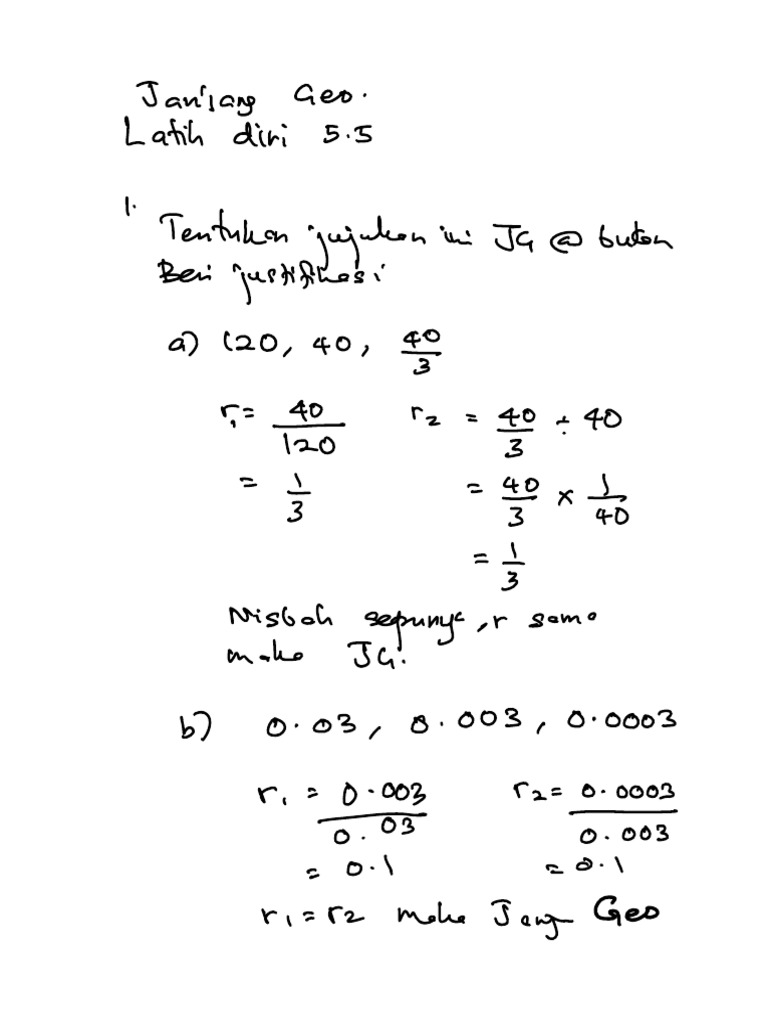 Janjang Geo.
Latih diri 5.5
1. Tentukan jujukan ini JG @ bukan
Beri justifikasi
a) 120, 40, 40/3
r₁ = 40/120 r₂ = 40/3 ÷ 40
= 1/3 = 40/3 x 1/40
= 1/3
Nisbah sepunya, r sama
maka JG.
b) 0.03, 0.003, 0.0003
r₁ = 0.003/0.03 r₂ = 0.0003/0.003
= 0.1 = 0.1
r₁ = r₂ maka Jang Geo